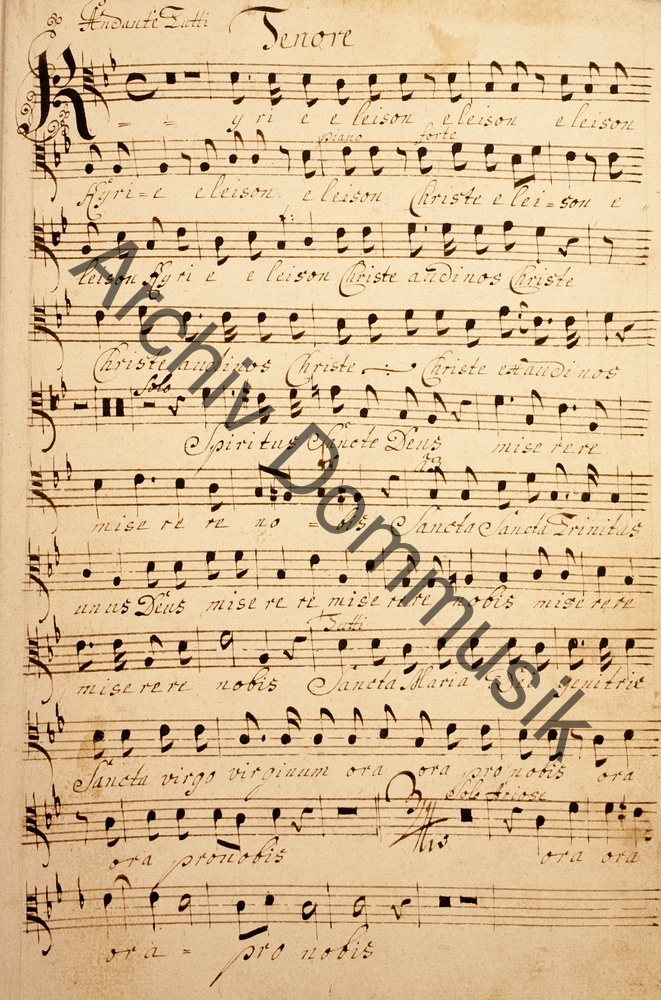 Andante Tutti Tenore
Kyri e eleison eleison eleison
piano forte
Kyri=e eleison eleison Christe elei=son e
leison Kyri e eleison Christe audinos Christe
Christe audinos Christe Christe exaudinos
Solo
Spiritus Sancte Deus miserere
mise re re no = bis Sancta Sancta Trinitas
unus Deus mise re re mise rere nobis mise rere
mise rere nobis Sancta Maria Dei genitrix
Tutti
Sancta virgo virginum ora ora pro nobis ora
Solo
ora pronobis ora ora
ora = pro nobis
Archiv Dommusik